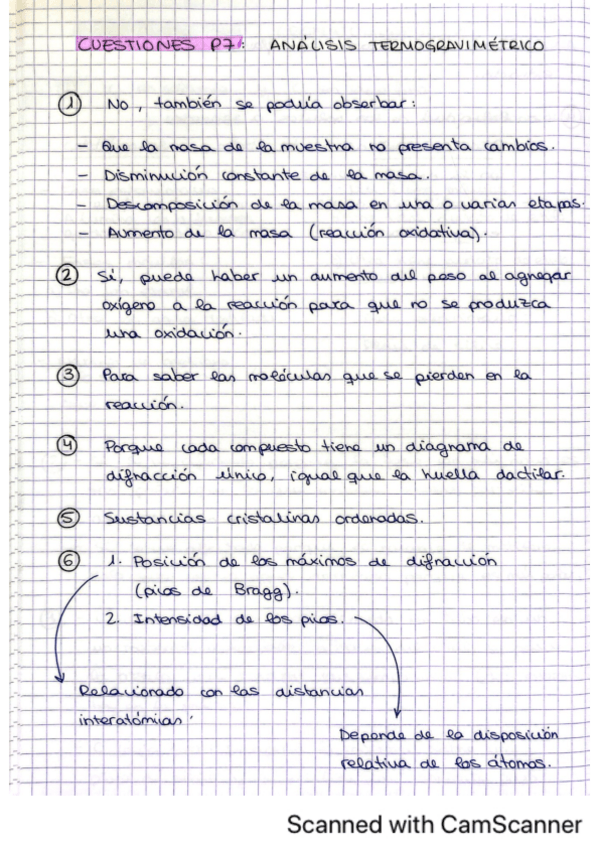 CUESTIONES P7: ANÁLISIS TERMOGRAVIMÉTRICO
① No, también se podría obserbar:
- Que la masa de la muestra no presenta cambios.
- Disminución constante de la masa.
- Descomposición de la masa en una o varias etapas.
- Aumento de la masa (reacción oxidativa).
② Sí, puede haber un aumento del peso al agregar
oxígeno a la reacción para que no se produzca
una oxidación.
③ Para saber las moléculas que se pierden en la
reacción.
④ Porque cada compuesto tiene un diagrama de
difracción único, igual que la huella dactilar.
⑤ Sustancias cristalinas ordenadas.
⑥ 1. Posición de los máximos de difracción
(picos de Bragg).
2. Intensidad de los picos.
Relacionado con las distancias
interatómias.
Depende de la disposición
relativa de los átomos.
Scanned with CamScanner